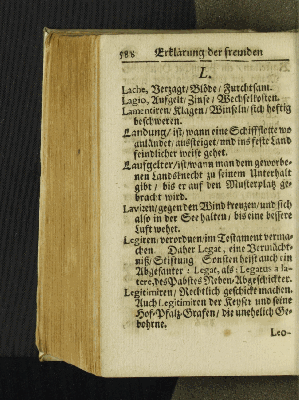 588 Erklärung der fremden
L.
Lache, Verzagt/ Blöde/ Furchtsam.
Lagio, Aufgelt/ Zinse/ Wechselkosten.
Lamentiren/ Klagen/ Winseln/ sich heftig
beschweren.
Landung/ ist/ wann eine Schiffflotte wo
anländet/ aussteiget/ und ins feste Land
feindlicher weise gehet.
Laufgelter/ ist/ wann man dem geworbe-
nen Landsknecht zu seinem Unterhalt
gibt/ bis er auf den Musterplatz ge-
bracht wird.
Laviren/ gegen den Wind kreuzen/ und sich
also in der See halten/ bis eine bessere
Luft wehet.
Legiren/ verordnen/ im Testament verma-
chen. Daher Legat, eine Vermächt-
niß/ Stifftung Sonsten heist auch ein
Abgesanter: Legat, als: Legatus à la-
tere, des Pabstes Neben-Abgeschickter.
Legitimiren/ Rechtlich geschickt machen.
Auch Legitimiren der Keyser und seine
Hof-Pfalz-Grafen/ die unehelich Ge-
bohrne.
Leo-